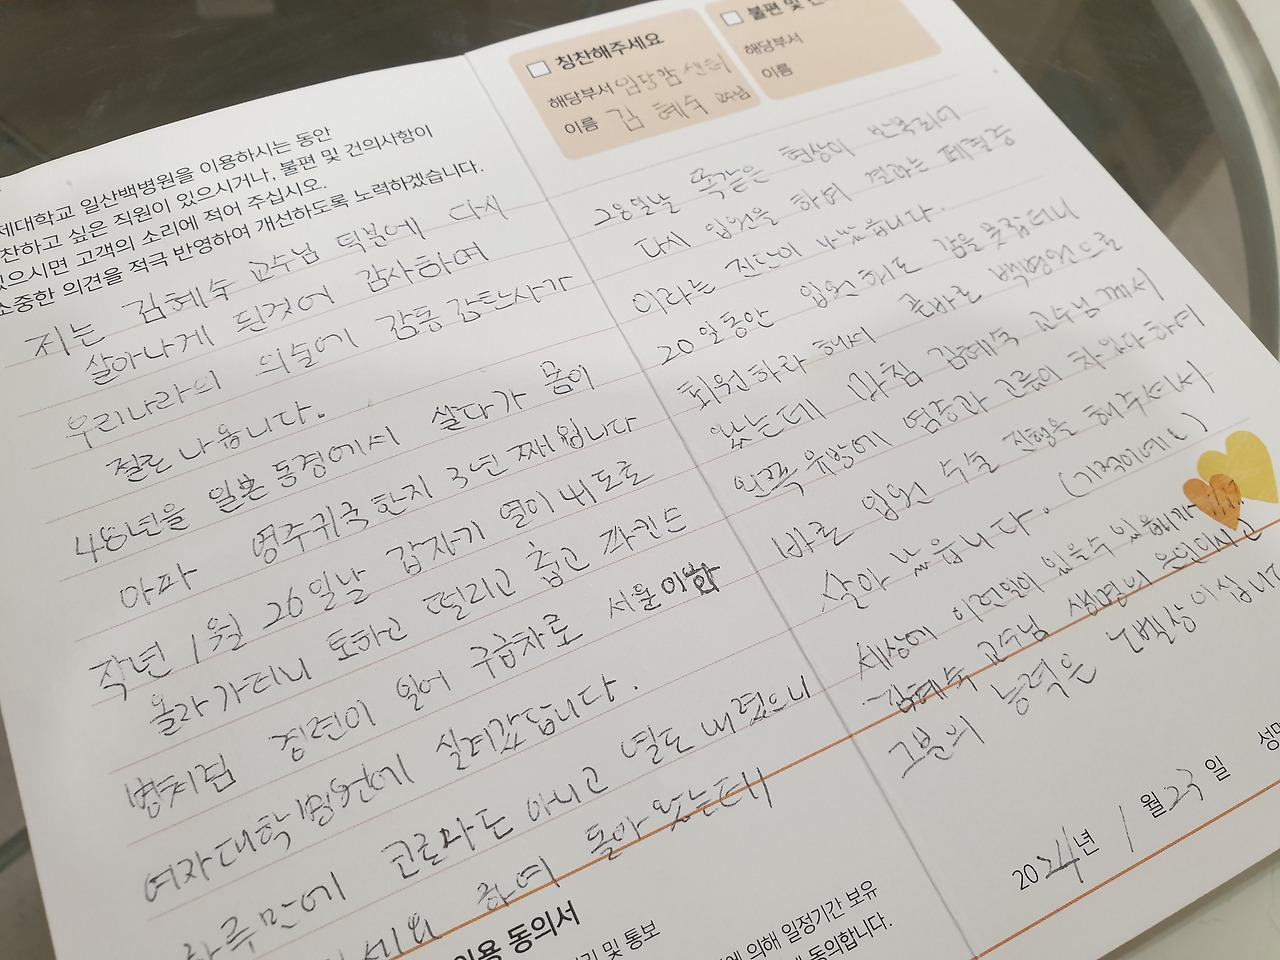 제대학교 일산백병원을 이용하시는 동안
찬하고 싶은 직원이 있으시거나, 불편 및 건의사항이
있으시면 고객의 소리에 적어 주십시오.
소중한 의견을 적극 반영하여 개선하도록 노력하겠습니다.
저는 김혜숙 교수님 덕분에 다시
살아나게 된것에 감사하며
우리나라의 의술에 감동 감탄사가
절로 나옵니다.
48년을 일본 동경에서 살다가 몸이
아파 영주귀국한지 3년째 됩니다
작년 1월 26일날 갑자기 열이 41도로
올라가더니 토하고 떨리고 춥고 파킨슨
병처럼 경련이 일어 구급차로 서울이화
여자대학병원에 실려갔습니다.
하루만에 코로나도 아니고 열도 내렸으니
하여 돌아왔는데
이용 동의서
및 통보
에 의해 일정기간 보유
동의합니다.
칭찬해주세요
해당부서 유방암센터
이름 김혜숙 교수님
불편 및
해당부서
이름
그 다음날 똑같은 현상이 반복되어
다시 입원을 하며 결과는 패혈증
이라는 진단이 나왔습니다.
20일동안 입원해도 감을 못잡더니
퇴원하라 해서 곧바로 백병원으로
왔는데 마침 김혜숙 교수님께서
왼쪽 유방에 염증과 고름이 차있다하여
바로 입원 수술 진행을 해주셔서
살아 났읍니다. (기적이예요)
세상에 이런일이 있을수 있읍니까
김혜숙 교수님 생명의 은인이시고
그분의 능력은 노벨상이십니다
2024년 1월 23일
성명